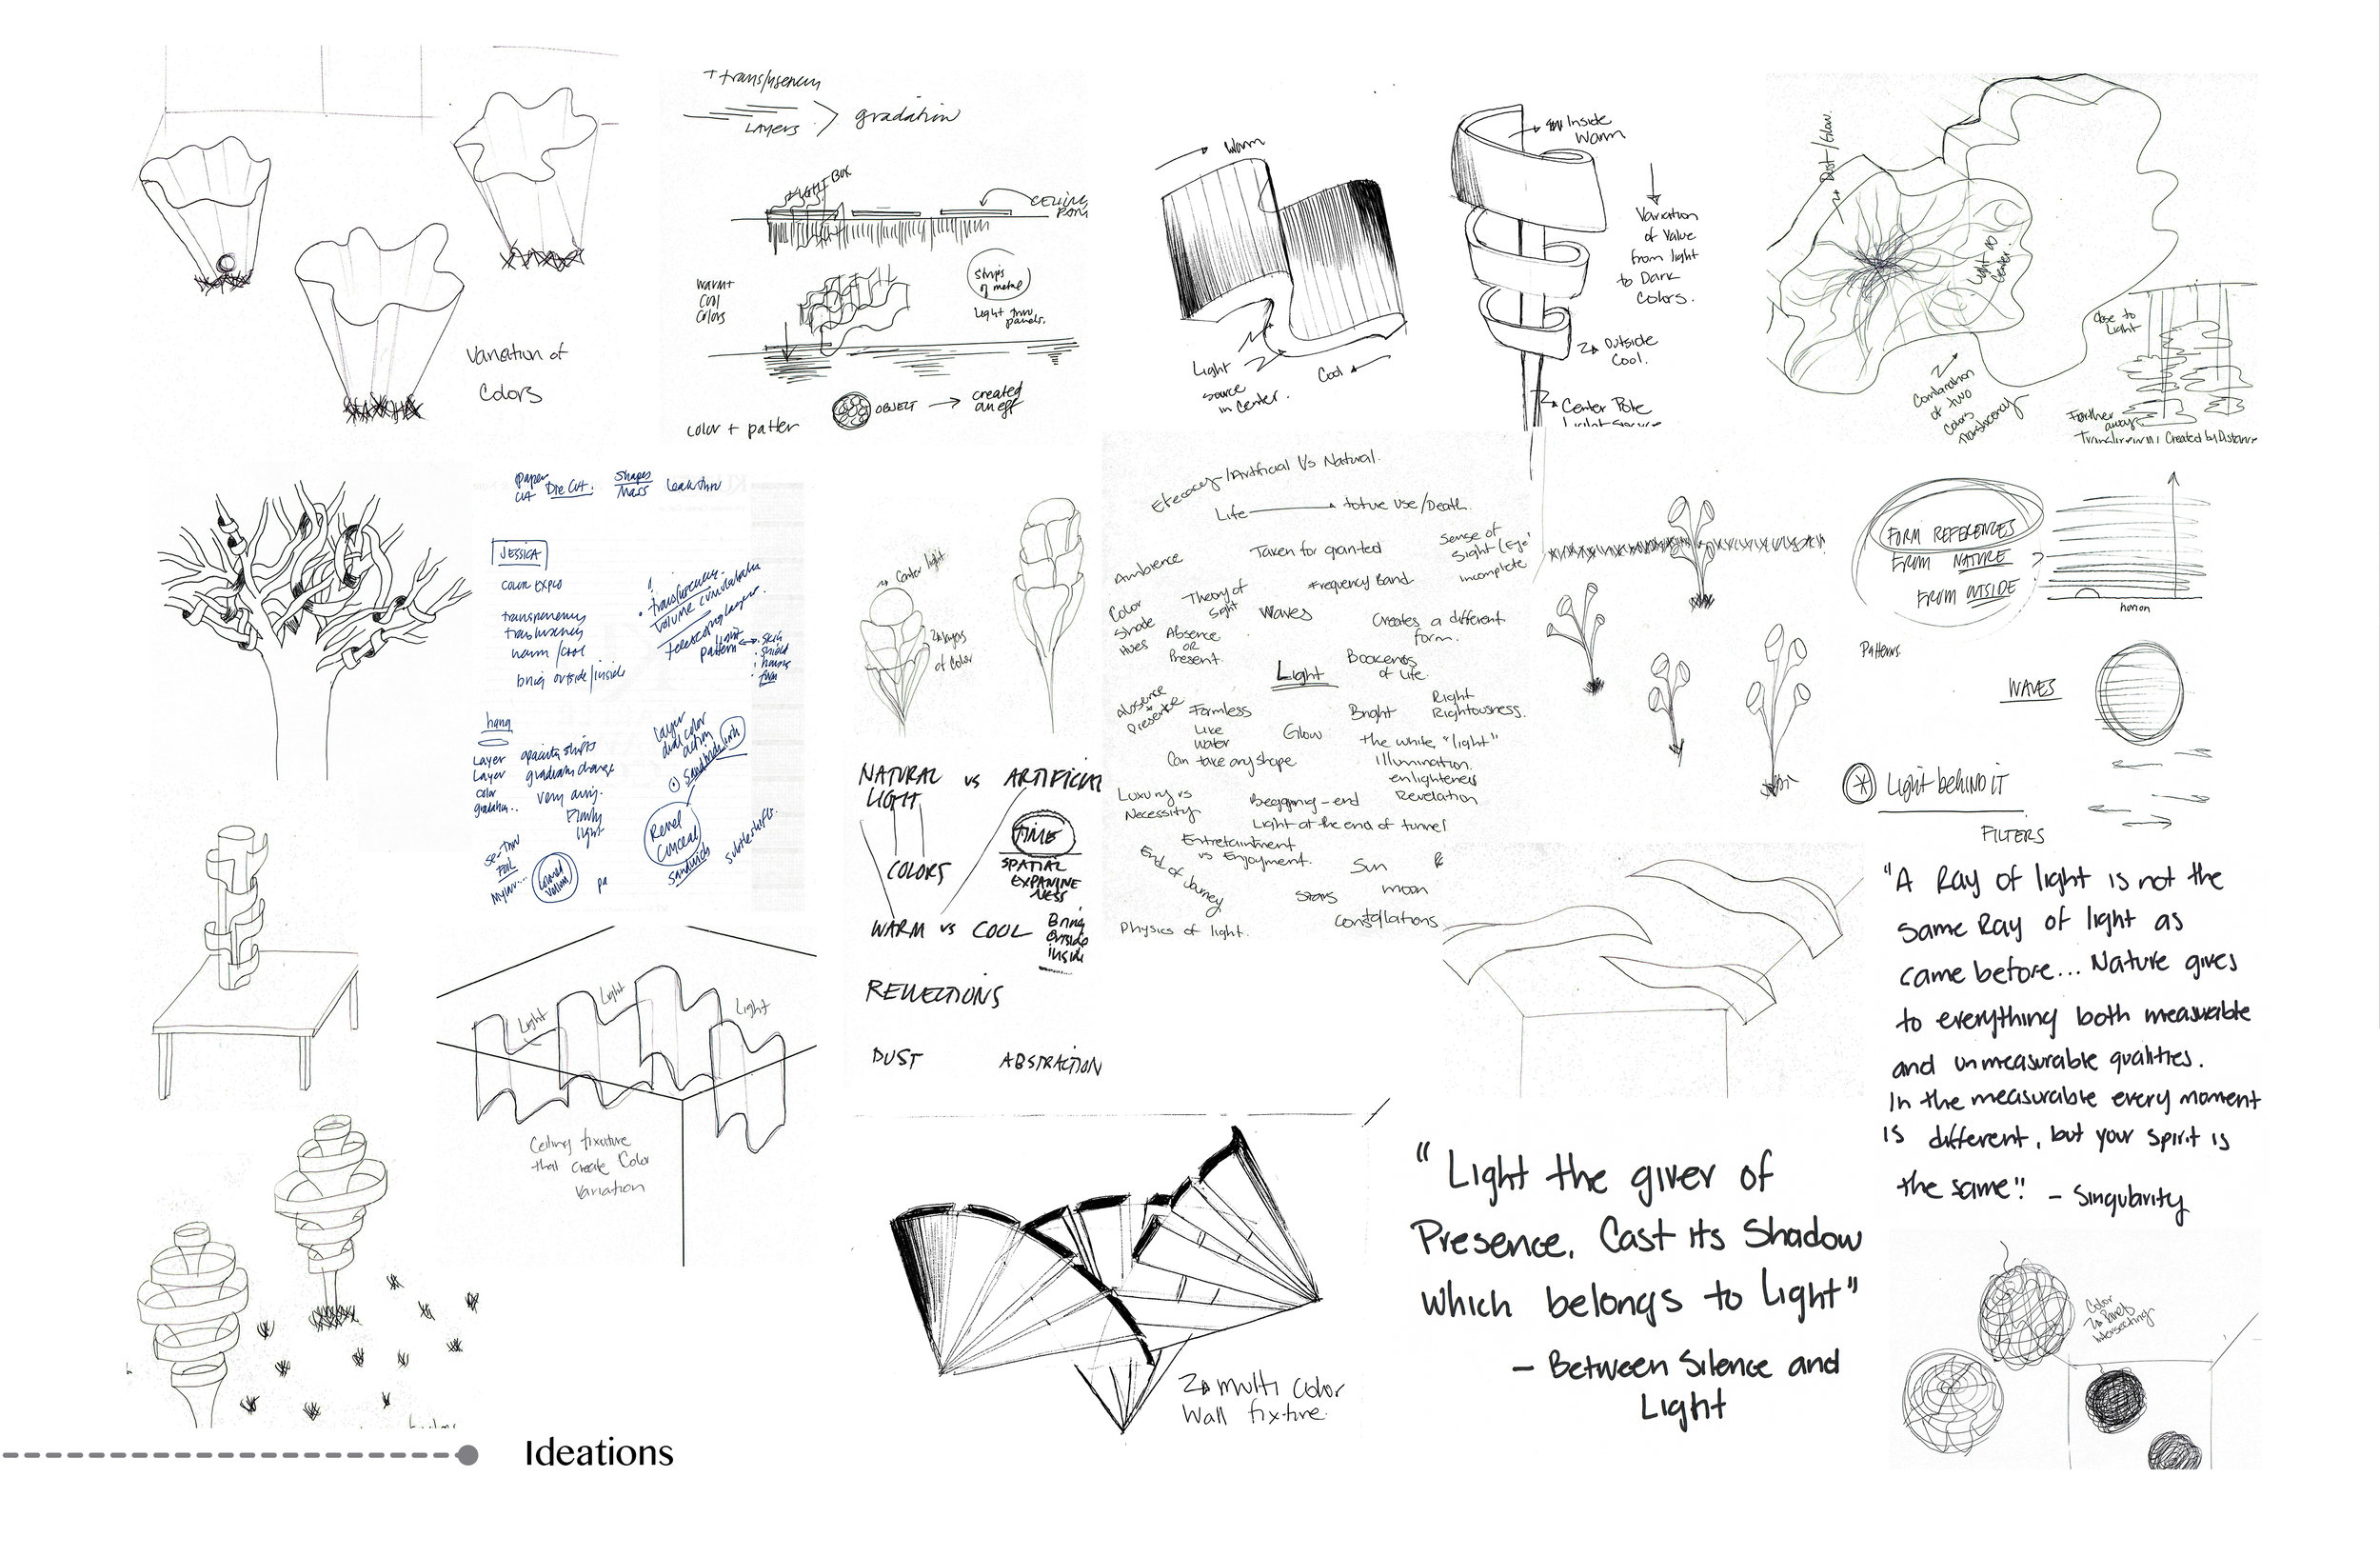 Variation of
Colors
LAYERS
gradation
Light Box
warm+
Cool
Colors
strips
of metal
Light thru
panels.
OBJECT
created
an eff
color + patter
Warm
Light
source
in center.
Cool
Inside
Warm
Variation
of Value
from light
to Dark
Colors.
Outside
Cool.
Center Pole
Dust/Glow.
Light as
Center.
of two
Colors
Close to
Light
Farther
away
Created by Distance
paper
cut
Die Cut.
Shapes
Mass
Leak thru
JESSICA
COLOR EXPLO
transparency
translucency
warm/cool
bring outside/inside
light
pattern
hang
Layer
Layer
Color
opacity shifts
Layer
dual color
action
Reveal
Conceal
Sandwich
subtle shifts.
Colored
Vellum
pa
Center light
layers
of Color
/Artificial Vs Natural.
Life
Use/Death.
Ambience
Taken for granted
Sense of
Sight (Eye)
incomplete
Frequency Band
Color
Shade
Hues
Theory of
Sight
Waves
Absence
OR
Present.
Creates a different
form.
Light
Bookends
of Life.
Absence
Presence
Formless
Like
Water
Can take any shape
Glow
Bright
Right
Rightousness.
the white "light"
Illumination.
enlightened
Revelation
Luxury vs
Necessity
Beggning-end
Light at the end of tunnel
Entretainment
vs Enjoyment.
End of Journey
Sun
moon
Stars
Constallations
Physics of light.
FORM REFERENCES
FROM NATURE
FROM OUTSIDE
Patterns.
WAVES
Light behind it
FILTERS
NATURAL vs ARTIFICIAL
LIGHT
TIME
COLORS
SPATIAL
EXPANINE
NESS
WARM vs COOL
Bring
Outside
inside
REFLECTIONS
DUST
ABSTRACTION
Light
Light
Light
Ceiling fixture
that create Color
Variation
"A Ray of light is not the
same Ray of light as
came before... Nature gives
to everything both measurable
and unmeasurable qualities.
In the measurable every moment
is different, but your spirit is
the same". - Singularity
"Light the giver of
Presence. Cast its Shadow
Which belongs to Light"
- Between Silence and
Light
multi Color
Wall fixture.
Color
Intersecting
Ideations